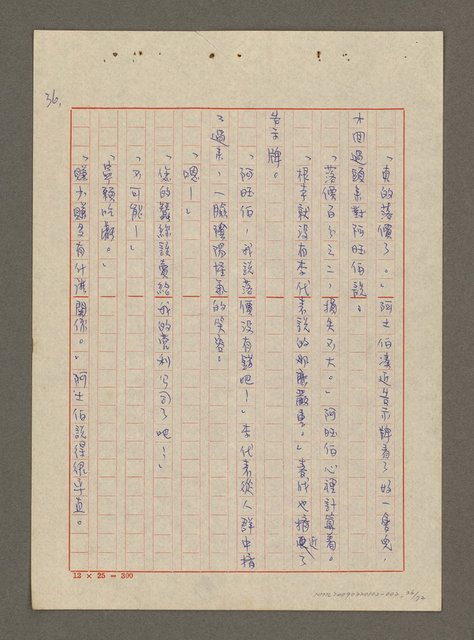 36.
「真的落價了。」阿土伯湊近告示牌看了好一會兒，
才回過頭來對阿旺伯說：
「落價百分之二，損失不大。」阿旺伯心裡計算著。
「根本就沒有李代表說的那麼嚴重。」春代也擠近了
告示牌。
「阿旺伯，我說落價沒有錯吧！」李代表從人群中擠
了過來，一臉陰陽怪氣的笑容。
「嗯！」
「您的蠶絲該賣給我的營利公司了吧！」
「不可能！」
「寧願吃虧。」
「賺少賺多有什麼關係。」阿土伯說得很平直。
12 × 25 = 300